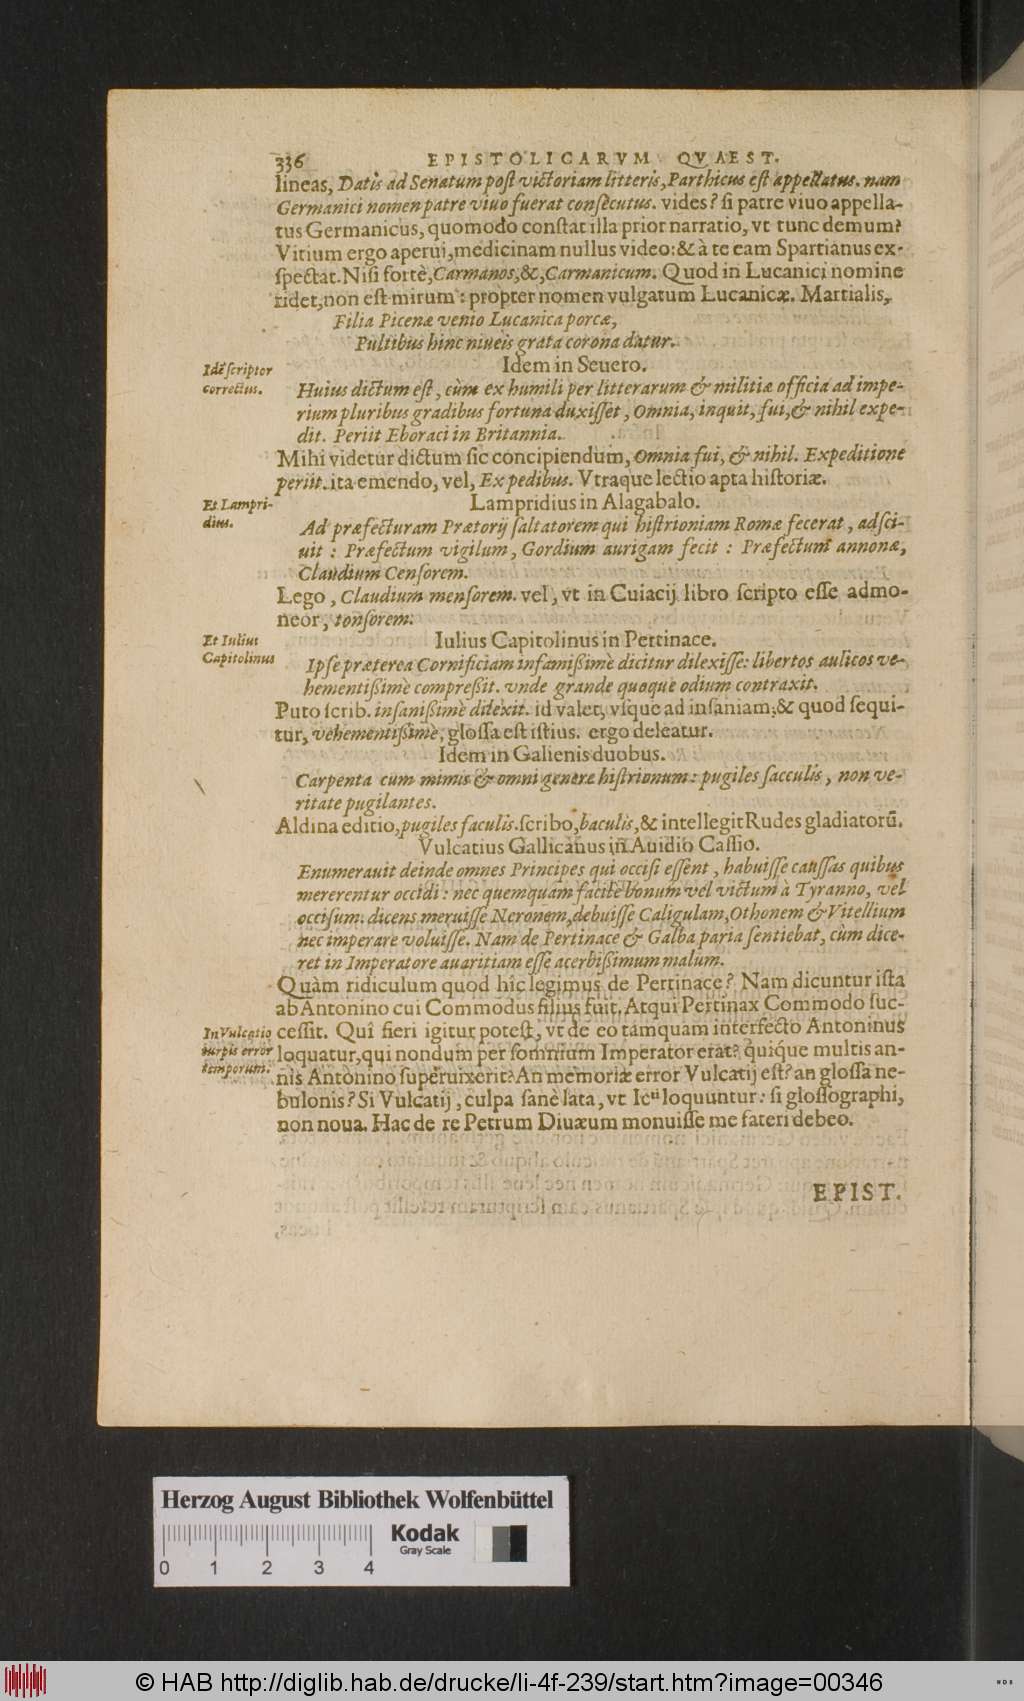 336 EPISTOLICARVM QVAEST.
lineas, Datis ad Senatum post victoriam litteris, Parthicus est appellatus. nam
Germanici nomen patre viuo fuerat consecutus. vides? si patre viuo appella-
tus Germanicus, quomodo constat illa prior narratio, vt tunc demum?
Vitium ergo aperui, medicinam nullus video: & à te eam Spartianus ex-
spectat. Nisi fortè, Carmanos, &, Carmanicum. Quod in Lucanici nomine
ridet, non est mirum: propter nomen vulgatum Lucanicæ. Martialis,
Filia Picenæ venio Lucanica porcæ,
Pultibus hinc niueis grata corona datur.
Idem in Seuero.
Idē scriptor
correctus.
Huius dictum est, cùm ex humili per litterarum & militiæ officia ad impe-
rium pluribus gradibus fortuna duxisset, Omnia, inquit, fui, & nihil expe-
dit. Periit Eboraci in Britannia.
Mihi videtur dictum sic concipiendum, Omnia fui, & nihil. Expeditione
periit. ita emendo, vel, Expedibus. Vtraque lectio apta historiæ.
Lampridius in Alagabalo.
Et Lampri-
dius.
Ad præfecturam Prætorij saltatorem qui histrioniam Romæ fecerat, adsci-
uit: Præfectum vigilum, Gordium aurigam fecit: Præfectum annonæ,
Claudium Censorem.
Lego, Claudium mensorem. vel, vt in Cuiacij libro scripto esse admo-
neor, tonsorem.
Iulius Capitolinus in Pertinace.
Et Iulius
Capitolinus
Ipse præterea Cornificiam infamißimè dicitur dilexisse: libertos aulicos ve-
hementißimè compreßit. vnde grande quoque odium contraxit.
Puto scrib. insanißimè dilexit. id valet, vsque ad insaniam; & quod sequi-
tur, vehementißimè, glossa est istius. ergo deleatur.
Idem in Galienis duobus.
Carpenta cùm mimis & omni genere histrionum: pugiles sacculis, non ve-
ritate pugilantes.
Aldina editio, pugiles faculis. scribo, baculis, & intellegit Rudes gladiatorū.
Vulcatius Gallicanus in Auidio Cassio.
Enumerauit deinde omnes Principes qui occisi essent, habuisse caussas quibus
mererentur occidi: nec quemquam facilè bonum vel victum à Tyranno, vel
occisum. dicens meruisse Neronem, debuisse Caligulam, Othonem & Vitellium
nec imperare voluisse. Nam de Pertinace & Galba paria sentiebat, cùm dice-
ret in Imperatore auaritiam esse acerbißimum malum.
Quàm ridiculum quod hîc legimus de Pertinace? Nam dicuntur ista
ab Antonino cui Commodus filius fuit. Atqui Pertinax Commodo suc-
cessit. Quî fieri igitur potest, vt de eo tamquam interfecto Antoninus
In Vulcatio
turpis error
temporum.
loquatur, qui nondum per somnium Imperator erat? quique multis an-
nis Antonino superuixerit? An memoriæ error Vulcatij est? an glossa ne-
bulonis? Si Vulcatij, culpa sanè lata, vt Icti loquuntur: si glossographi,
non noua. Hac de re Petrum Diuæum monuisse me fateri debeo.
EPIST.
Herzog August Bibliothek Wolfenbüttel
Kodak
Gray Scale
0 1 2 3 4
© HAB http://diglib.hab.de/drucke/li-4f-239/start.htm?image=00346